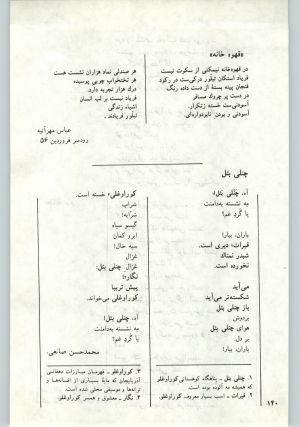 «قهوه خانه»
در قهوه‌خانه نیمکتی از سکوت نیست
فریاد استکان تبلور درگیریست در رکود
فنجان پینه بستهٔ از دست داده رنگ
در دست پر چروک مسافر
آسودنی‌ست خسته زنگزار.
آسودنی و بودن نابودواره‌ای.
هر صندلی نماد هزاران نشست هست
هر تختخواب چوبی پوسیده
درک هزار تجربه دارد.
فریاد نیست بر لب انسان
اشیاء زندگی
تبلور فریادند.
عباس مهرآتیه
رودسر فروردین ۵۶
چنلی بئل
آه، چنلی بئل!
به نشسته به‌دامنت
یا گردِ غم؟
باران، ببار!
قیرات۲ دیری است.
شبدر نمناک
نخورده است.
می‌آید
شکسته‌تر می‌آید
باز چنلی بئل
بردوش
هوای چنلی بئل
بر دل.
باران، ببار!
کوراوغلی۳ خسته است.
شراب
گیسو سیاه
ابرو کمان
سیه خال!
غزال
غزال چنلی بئل.
نگار۴!
پیش تربیا
کوراوغلی می‌خواند.
آه، چنلی بئل!
به نشسته به‌دامنت
یا گردِ غم؟
محمدحسن صانعی
۱. چنلی بئل - پناهگاه کوهستانی کوراوغلو
که همیشه مه آلوده بوده است.
۲. قیرات - اسب بسیار معروف کوراوغلو.
۳. کوراوغلو - قهرمان مبارزات دهقانی
آذربایجان که مایهٔ بسیاری از افسانه‌ها و
ترانه‌ها و موسیقی محلی شده است.
۴. نگار - معشوق و همسر کوراوغلو.
۱۴۰